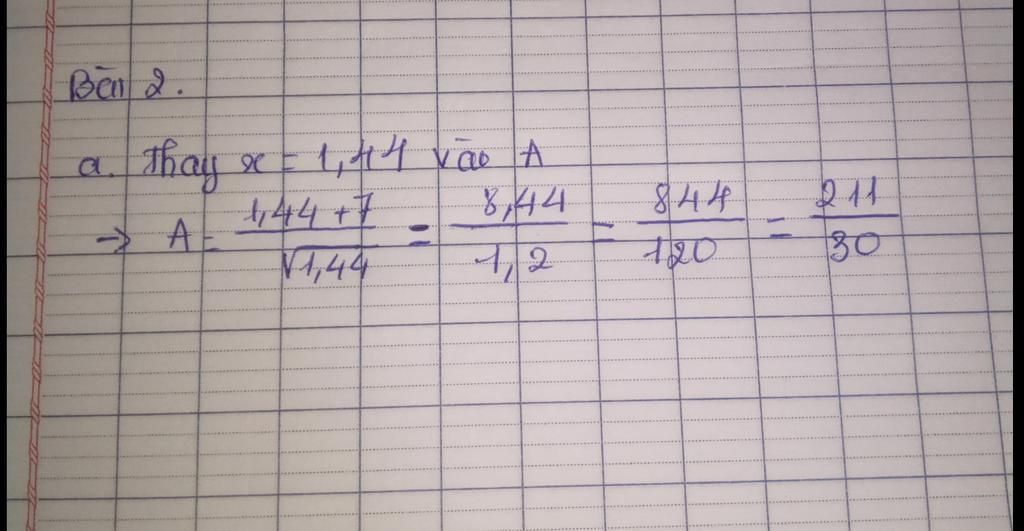 Bài 2.
a. Thay x = 1,44 vào A
→ A = \frac{1,44 + 7}{\sqrt{1,44}} = \frac{8,44}{1,2} = \frac{844}{120} = \frac{211}{30}